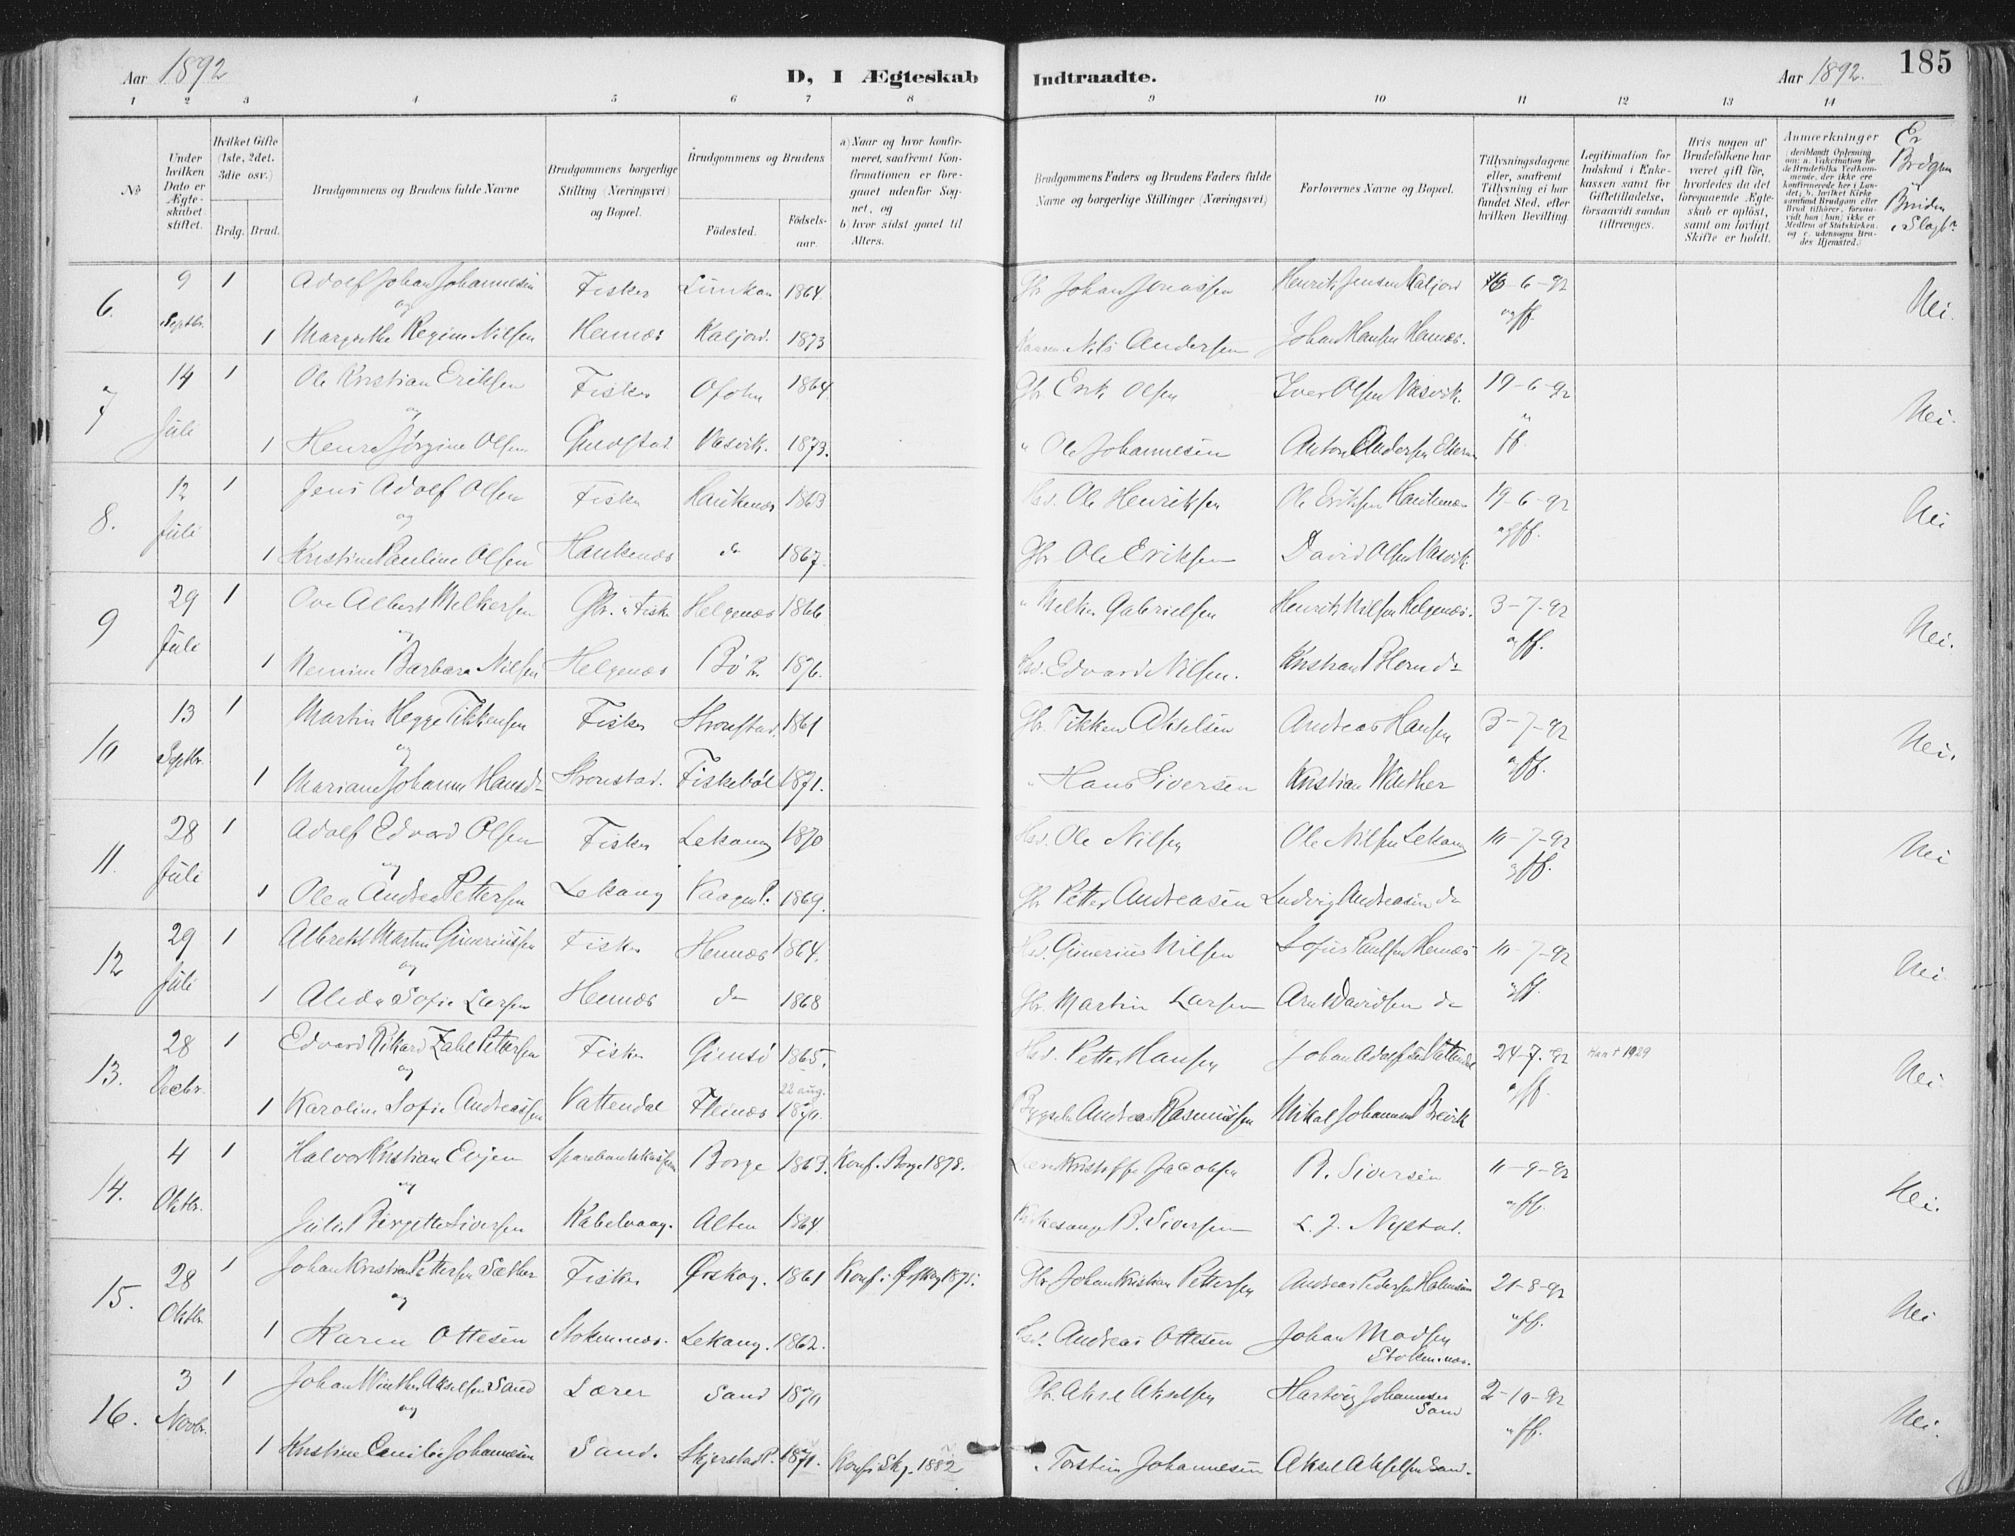 Aar 1892
D, I Ægteskab
Indtraadte.
Aar 1892.
185
1 2 3 4 5 6 7 8 9 10 11 12 13 14
No
Under hvilken Dato er Ægteskabet stiftet.
Hvilket Gifte (1ste, 2det. 3die osv.)
Brdg. Brud.
Brudgommens og Brudens fulde Navne
Brudgommens borgerlige Stilling (Næringsvei) og Bopæl.
Brudgommens og Brudens
Fødested.
Fødselsaar.
a) Naar og hvor konfirmeret, saafremt Konfirmationen er foregaaet udenfor Sognet, og
b) hvor sidst gaaet til Alters.
Brudgommens Faders og Brudens Faders fulde Navne og borgerlige Stillinger (Næringsvei)
Forlovernes Navne og Bopæl.
Tillysningsdagene eller, saafremt Tillysning ei har fundet Sted, efter hvilken Bevilling.
Legitimation for Indskud i Enkekassen samt for Giftetilladelse, forsaavidt saadan tiltrænges.
Hvis nogen af Brudefolkene har været gift før, hvorledes da det foregaaende Ægteskab er opløst, samt om lovligt Skifte er holdt.
Anmærkninger
Er Brdgm u Bruden i Slægt?
6. 9 Septbr. 1 Adolf Johan Johannesen Fisker 1864 Gbr Johan Jonassen Henrik Jensen Kaljord 6-92 Nei.
og
1 Margrethe Regine Nilsen Hennæs Kaljord. 1873 Nils Andersen Johan Hansen Hennæs. og ff.
7 14 Juli 1 Ole Kristian Eriksen Fisker Ofoten 1864. Gbr Erik Olsen Iver Olsen Vasvik. 19-6-92 Nei.
og
1 Jørgine Olsen Vasvik. 1873. " Ole Johannesen Anton Andersen ff
8. 12 Juli 1 Jens Adolf Olsen Fisker Haukenæs 1863 Hsd. Ole Henriksen Ole Eriksen Haukenæs 19-6-92 Nei
og
1 Kristine Pauline Olsen Haukenæs do 1867. Gbr Ole Eriksen David Olsen Vasvik. og ff.
9 29 Juli 1 Ove Albert Melkersen Gbr. u Fisk Helgenæs 1866 " Melker Gabrielsen Henrik Nilsen Helgenæs. 3-7-92 Nei.
og
1 Barbara Nilsen Helgenæs Bø P. 1876. Hsd. Edvard Nilsen. Kristian do og ff.
10 13 Septbr. 1 Martin Hegge Tikkensen Fisker Stronstad. 1861 Gbr. Tikken Akselsen Andreas Hansen 3-7-92 Nei.
og
1 Mariane Johanne Hansd Stronstad. Fiskebøl 1871. " Hans Siversen Kristian Winther og ff.
11. 28 Juli 1 Adolf Edvard Olsen Fisker Lekang 1870 Hsd. Ole Nilsen Ole Nilsen Lekang 10-7-92 Nei
og
1 Olea Andrea Pettersen Lekang Vaagen P. 1869. Gbr Petter Andreasen Ludvig Andreasen do og ff.
12 29 Juli 1 Albrekt Martin Guneriussen Fisker Hennæs 1864. Hsd. Gunerius Nilsen Sofus Paulsen Hennæs 10-7-92 Nei
og
1 Alida Sofie Larsen Hennæs do 1868 Gbr. Martin Larsen Arnt Davidsen do og ff.
13. 28 Decbr. 1 Edvard Rikard Zahl Pettersen Fisker Gimsø 1865. Hsd. Petter Hansen Johan Adolfsen Vattendal 24-7-92 Han † 1929 Nei.
og 22 aug.
1 Karoline Sofie Andreassen Vattendal Fleinæs 1870. Bygselm Andreas Rasmussen Mikal Johannesen Breivik og ff.
14. 4 Oktbr. 1 Halvor Kristian Evjen Borge 1863. Konf. i Borge 1878. Kristoffer Jacobsen B. Siversen 11-9-92 Nei.
og
Julie Birgitte Siversen Kabelvaag. Alten 1864 Kirkesanger B. Siversen L. J. Nystad. og ff.
15. 28 Oktbr. 1 Johan Kristian Pettersen Sæther Fisker Ørskog. 1861 Konf. i Ørskog 1875. Gbr Johan Kristian Pettersen Andreas Pedersen 21-8-92 Nei
og
1 Karen Ottesen Stokmarknæs. Lekang. 1862. Hsd. Andreas Ottesen Johan Madsen og ff.
16. 3 Novbr. 1 Johan Winther Akselsen Sand Lærer Sand 1870 Gbr. Aksel Akselsen Hartvig Johannesen Sand 2-10-92 Nei.
og
1 Kristine Johannesen Sand. Skjerstad P. 1871. Konf. i Skj. 1882 " Torstein Johannesen Aksel Akselsen Sand. og ff.